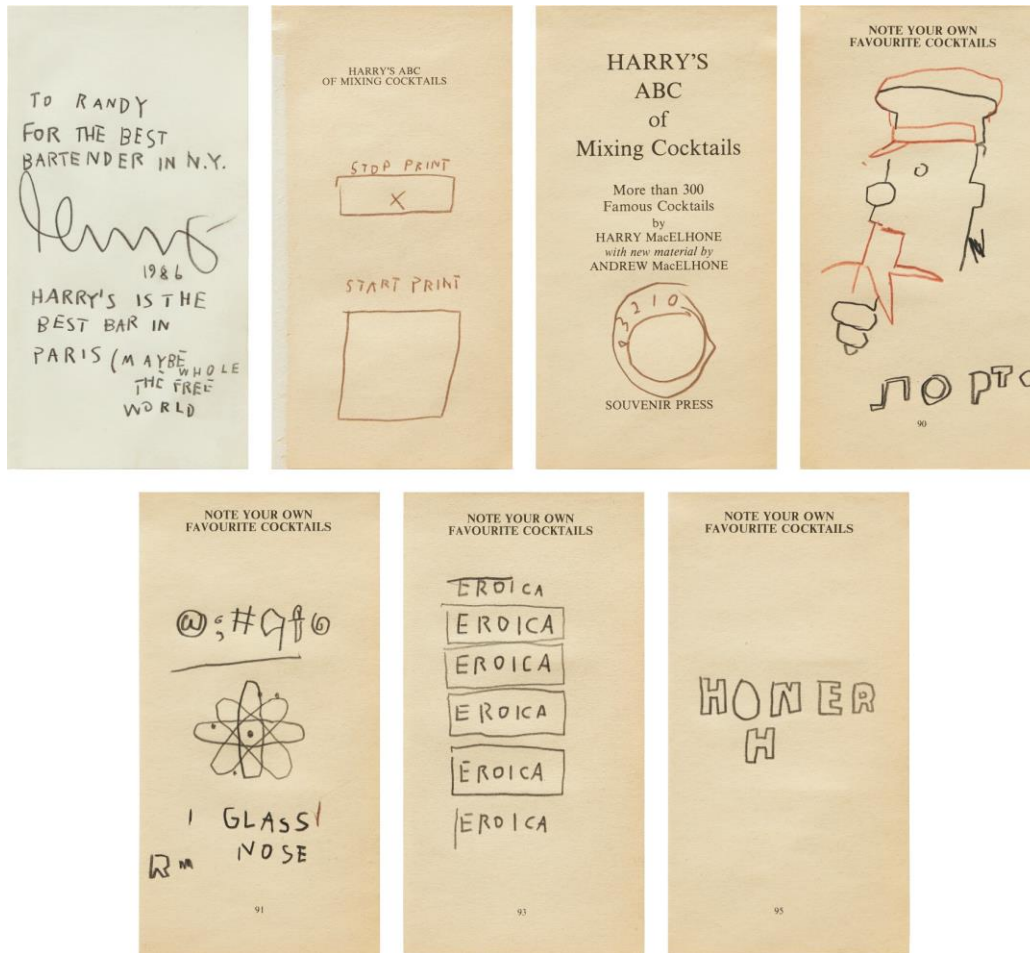 TO RANDY
FOR THE BEST
BARTENDER IN N.Y.
1986
HARRY'S IS THE
BEST BAR IN
PARIS (MAYBE
WHOLE
THE FREE
WORLD
HARRY'S ABC
OF MIXING COCKTAILS
STOP PRINT
X
START PRINT
HARRY'S
ABC
of
Mixing Cocktails
More than 300
Famous Cocktails
by
HARRY MacELHONE
with new material by
ANDREW MacELHONE
3 2 1 0
SOUVENIR PRESS
NOTE YOUR OWN
FAVOURITE COCKTAILS
ПОРТО
90
NOTE YOUR OWN
FAVOURITE COCKTAILS
@;#
1 GLASS
NOSE
91
NOTE YOUR OWN
FAVOURITE COCKTAILS
EROICA
EROICA
EROICA
EROICA
EROICA
EROICA
93
NOTE YOUR OWN
FAVOURITE COCKTAILS
HONER
H
95